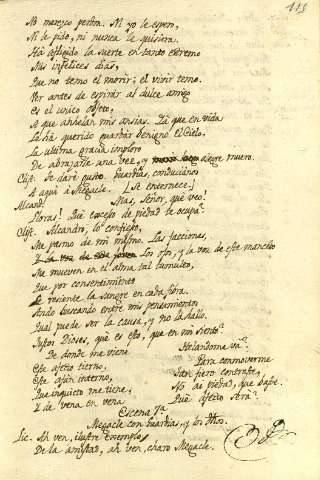 113
No merezco perdon. Ni yo le espero,
Ni le pido, ni nunca le quisiera.
Há afligido la suerte en tanto extremo
Mis infelices dias,
Que no temo el morir; el vivir temo.
Ver antes de espirar al dulce amigo
Es el unico objeto,
A que anhelan mis ansias. Ya que en vida
Le há querido guardár benigno el Cielo.
La ultima gracia imploro
De abrazarle una vez, y alegre muero.
Clist. Te daré gusto. Guardias, conducidnos
A aqui á Megacle. [Se enternece.]
Alcand. Mas, Señor, qué veo!
Lloras! Qué exceso de piedad te ocupa?
Clist. Alcandro, lo confieso,
Me pasmo de mi mismo. Las facciones,
Los ojos, y la voz de este mancebo
Me mueven en el alma tal tumulto,
Que por consentimiento
Se resiente la sangre en cada fibra.
Ando buscando entre mis pensamientos
Quál puede ser la causa, y no la hallo.
Justos Dioses, qué es esto, que en mi siento?
De donde me viene
Este afecto tierno,
Este afán interno,
Que inquieto me tiene,
Y de vena en vena
Helandome vá?
Para conmoverme
Tan fiero contraste,
No ai piedad, que baste.
Qué afecto será?
Escena 7ª
Megacle con Guardias, y los dhos.
Lic. Ah ven, ilustre exemplo
De la amistad, ah ven, charo Megacle.